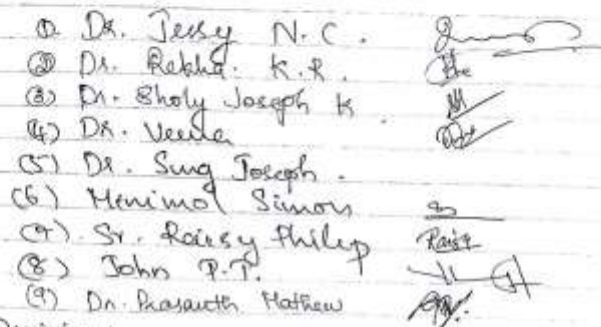 ① Dr. Jessy N.C.
② Dr. Rekha. K.R.
(3) Dr. Sholy Joseph K
(4) Dr. Veena
(5) Dr. Sung Joseph.
(6) Menimol Simon
(7). Sr. Raisy Philip
(8) John P.T.
(9) Dr. Prasanth Mathew